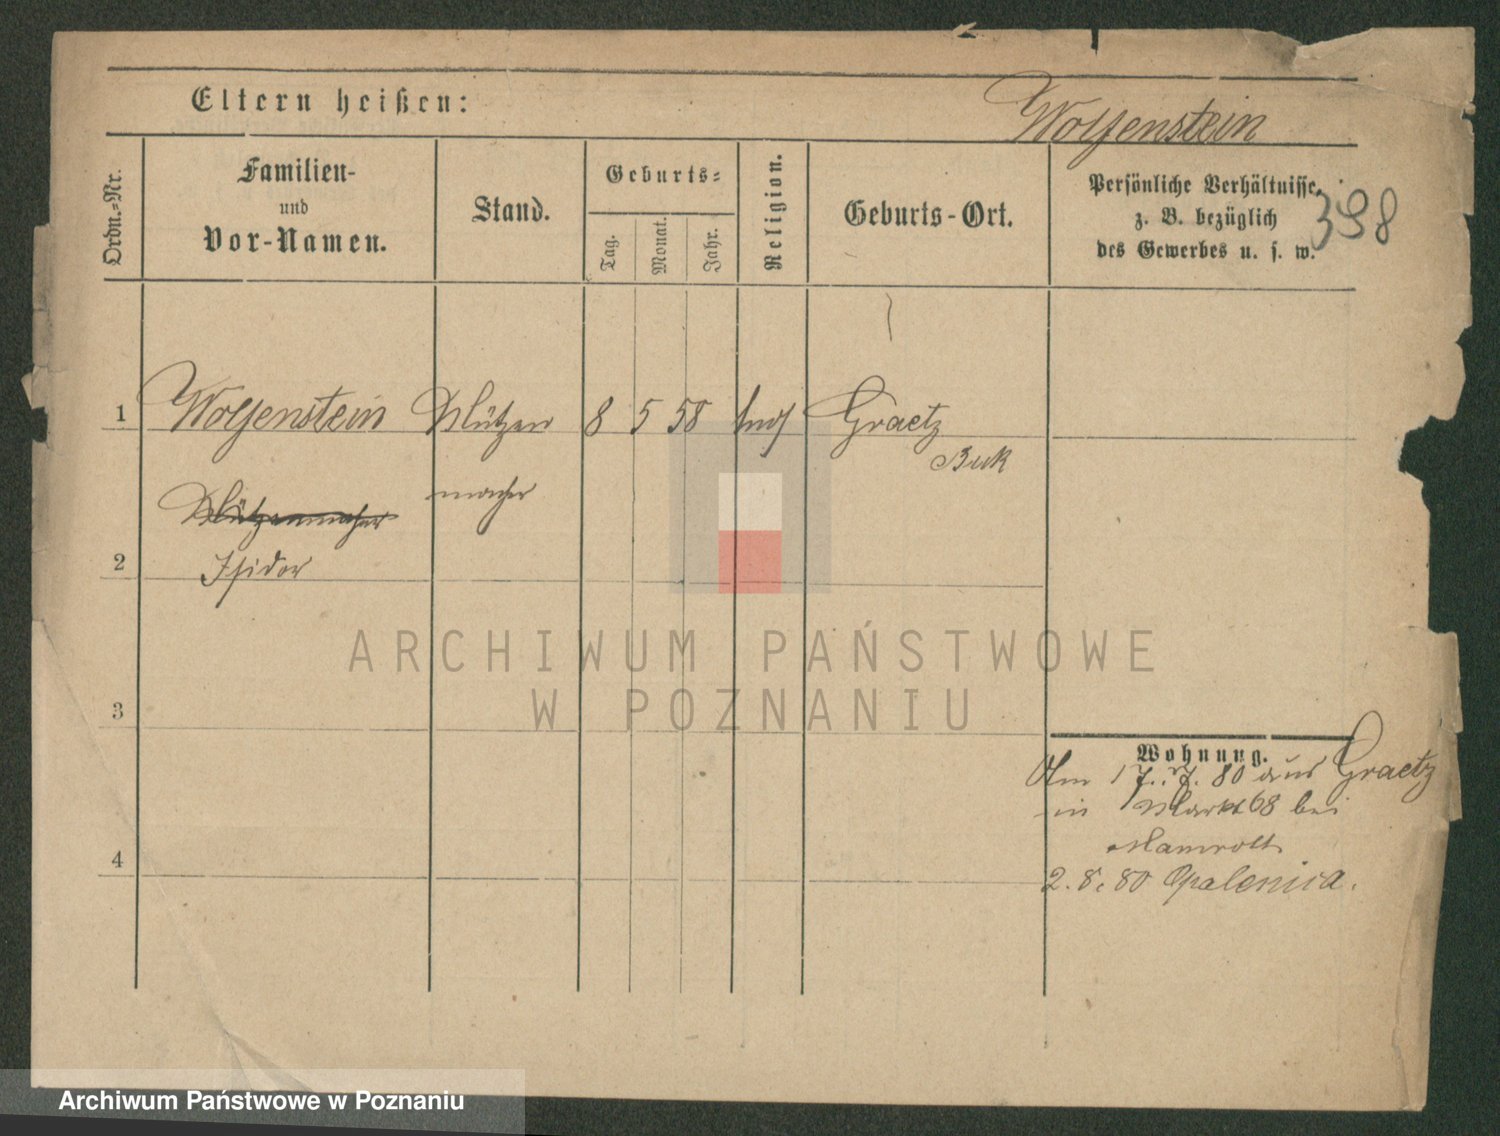 Eltern heißen:
Wolfenstein
Ordn.=Nr.
Familien-
und
Vor-Namen.
Stand.
Geburts=
Tag.
Monat.
Jahr.
Religion.
Geburts-Ort.
Persönliche Verhältnisse,
z. B. bezüglich
des Gewerbes u. s. w.
398
1
Wolfenstein Mützen 8 5 58 Graetz
Buk
macher
Mützenmacher
2
Isidor
ARCHIWUM PAŃSTWOWE
W POZNANIU
3
Wohnung.
Am 17. 7. 80 aus Graetz
in Markt 68 bei
Mamroth
4
2. 8. 80 Opalenica.
Archiwum Państwowe w Poznaniu